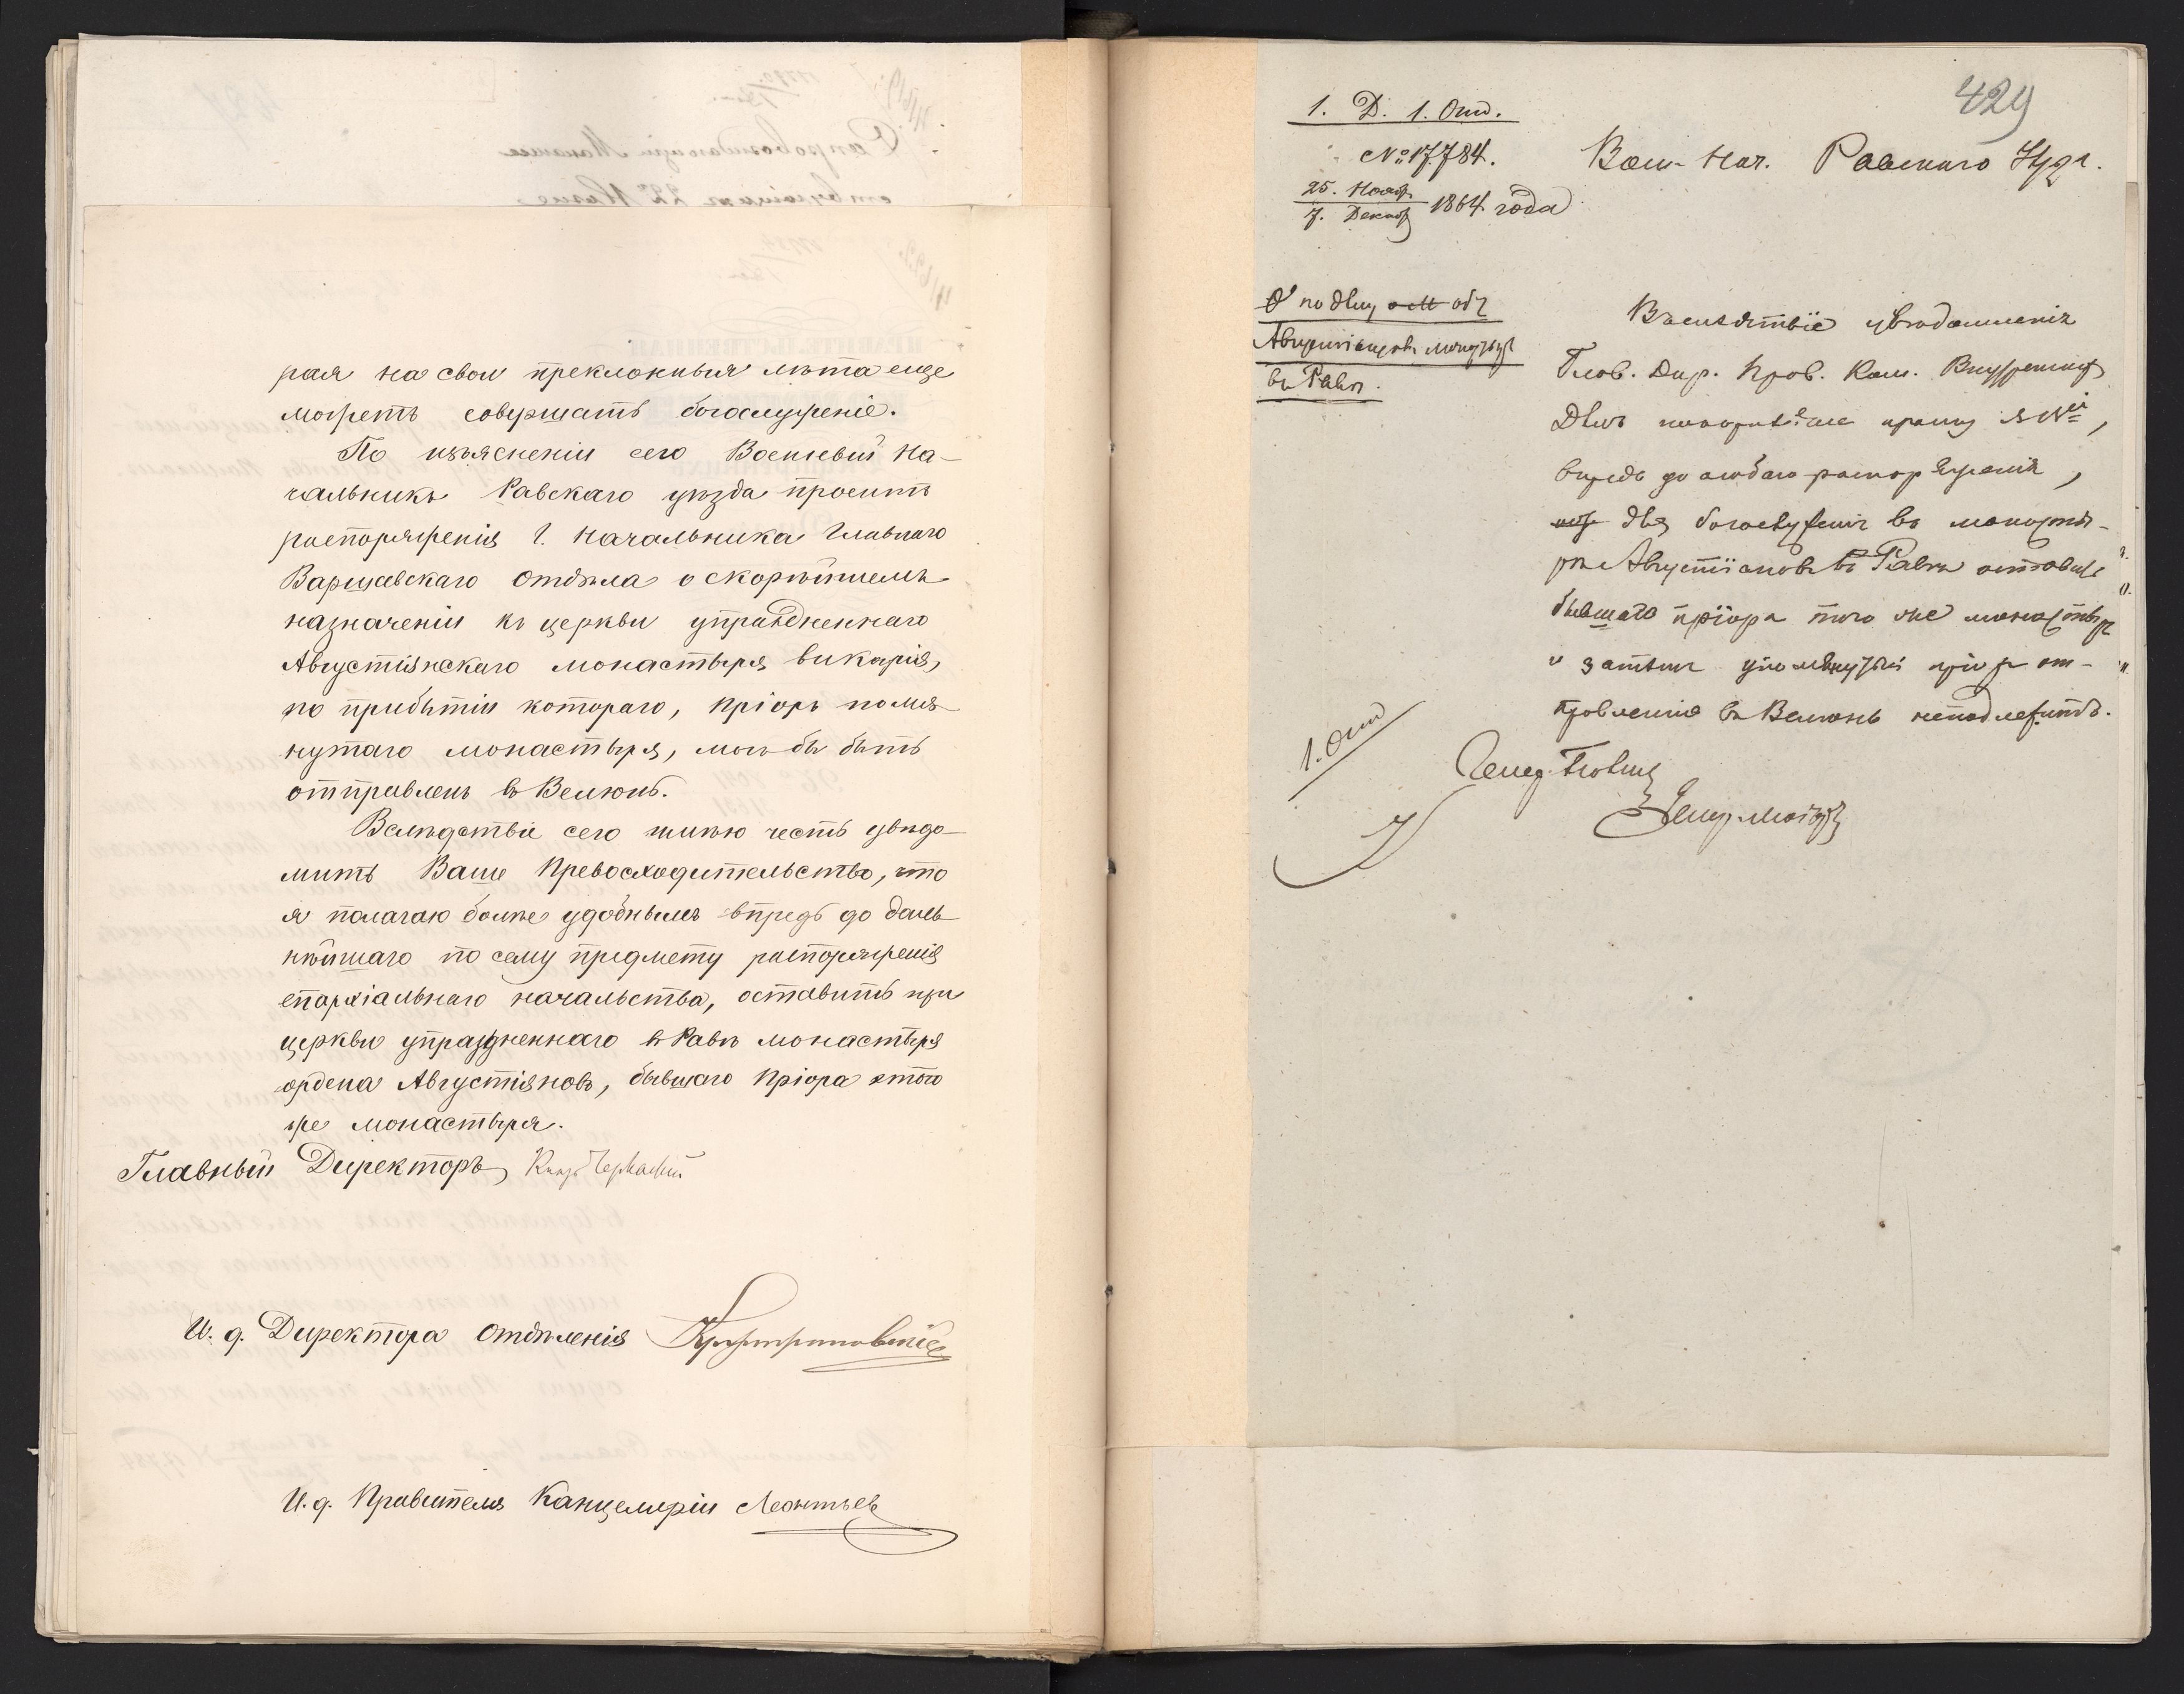 рая на свои преклонныя лѣта еще
можетъ совершать богослуженіе.
По изъясненіи сего Военный На-
чальникъ Равскаго уѣзда проситъ
распоряженія Г. Начальника Главнаго
Варшавскаго Отдѣла о скорѣйшемъ
назначеніи къ церкви упраздненнаго
Августіянскаго монастыря викарія,
по прибытіи котораго, Пріоръ помя-
нутаго монастыря, могъ бы быть
отправленъ въ Велюнь.
Вслѣдствіе сего имѣю честь увѣдо-
мить Ваше Превосходительство, что
я полагаю болѣе удобнымъ впредь до даль-
нѣйшаго по сему предмету распоряженія
епархіальнаго начальства, оставить при
церкви упраздненнаго въ Равѣ монастыря
ордена Августіяновъ, бывшаго Пріора этого
же монастыря.
Главный Директоръ, Князь Черкасскій
И. д. Директора Отдѣленія
И. д. Правителя Канцеляріи Леонтьевъ
429
1. Д. 1. Отд.
№ 17784.
Воен. Нач. Равскаго Уѣзд.
25. Нояб.
7. Декаб. 1864 года
по дѣлу объ
Августіянцовъ монастыр
въ Равѣ.
Вслѣдствіе увѣдомленія
Глав. Дир. Прав. Ком. Внутреннихъ
Дѣлъ покорнѣйше прошу
впредь до особаго распоряженія,
для богослуженія въ монасты-
рѣ Августіановъ въ Равѣ оставить
бывшаго пріора того же монастыря
и затѣмъ упомянутый пріоръ от-
правленію въ Велюнь неподлежитъ.
1. Отд